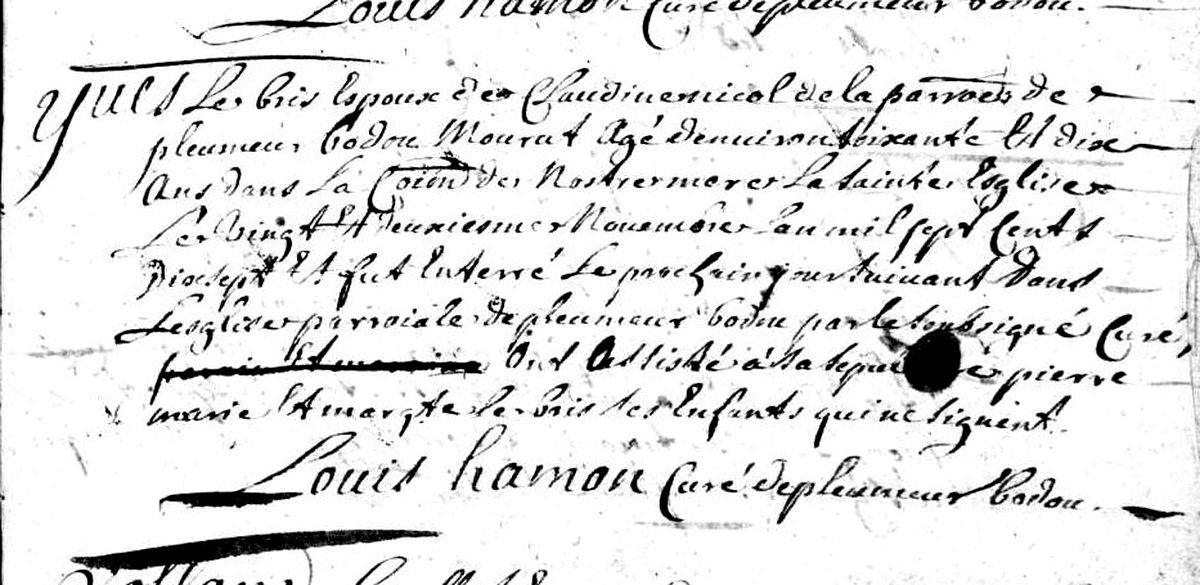 Louis hamon Curé de pleumeur bodou.
Yves Le bris Espoux de Claudine nicol de la parroess de
pleumeur bodou Mourut Agé denuiron soixante Et dix
Ans dans La Coïon de Nostre mere La sainte Esglise
Le Vingt Et deuxiesme Nouembre Lan mil sept Cents
Dixsept Et fut Enterré Le prochain jour suiuant Dans
Lesglise parroiale de pleumeur bodou par le soubsigné Curé,
parain Et maraine Ont Assisté à sa sepu re pierre
marie Et margte le bris ses Enfants qui ne signent.
Louis hamon Curé de pleumeur Bodou.